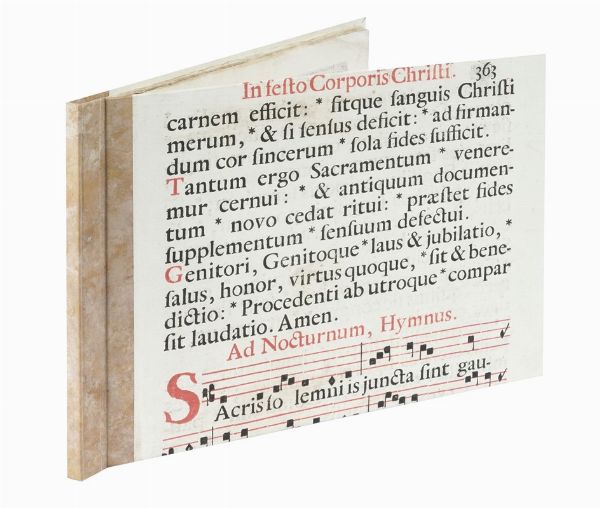 In feſto Corporis Chriſti. 363
carnem efficit: * ſitque ſanguis Chriſti
merum, * & ſi ſenſus deficit: * ad firman-
dum cor ſincerum * ſola fides ſufficit.
Tantum ergo Sacramentum * venere-
mur cernui: * & antiquum documen-
tum * novo cedat ritui: * præſtet fides
ſupplementum * ſenſuum defectui.
Genitori, Genitoque * laus & jubilatio, *
ſalus, honor, virtus quoque, * ſit & bene-
dictio: * Procedenti ab utroque * compar
ſit laudatio. Amen.
Ad Nocturnum, Hymnus.
SAcris ſo lemni is juncta ſint gau-